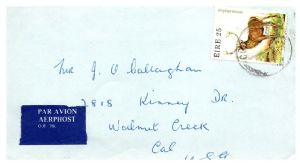 ÉIRE 25
Mr J O Callaghan
2818 Kinney Dr.
Walnut Creek
Cal
U.S.A
PAR AVION
AERPHOST